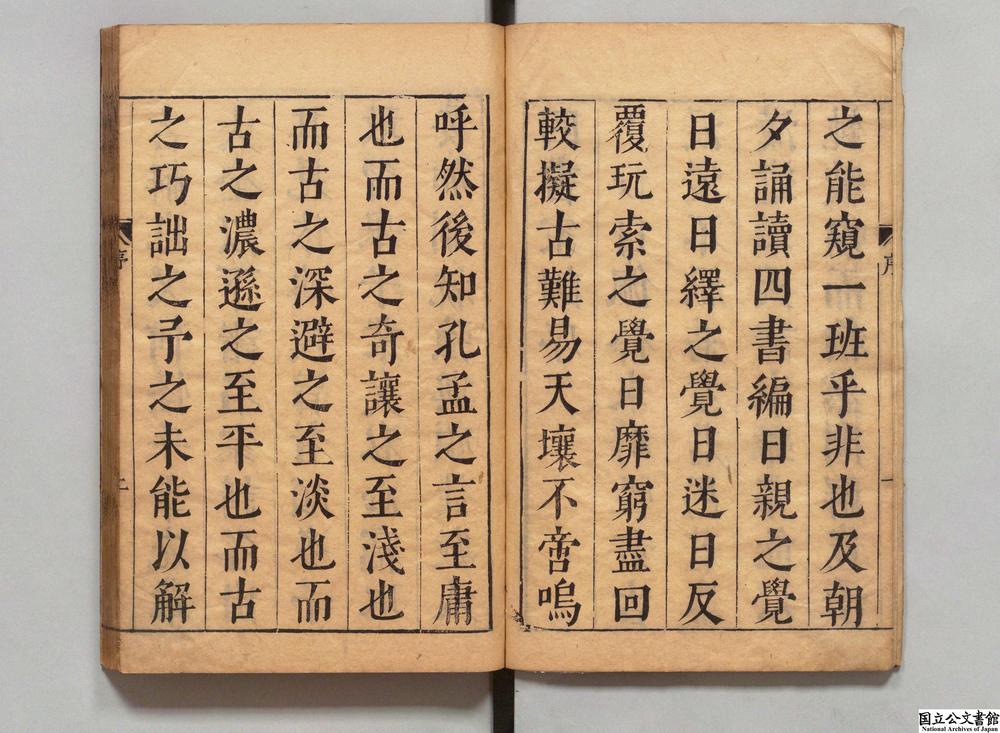 之能窺一班乎非也及朝
夕誦讀四書編日親之覺
日遠日繹之覺日迷日反
覆玩索之覺日靡窮盡回
較擬古難易天壤不啻嗚
呼然後知孔孟之言至庸
也而古之奇讓之至淺也
而古之深避之至淡也而
古之濃遜之至平也而古
之巧詘之予之未能以解
序
一
序
二
国立公文書館
National Archives of Japan